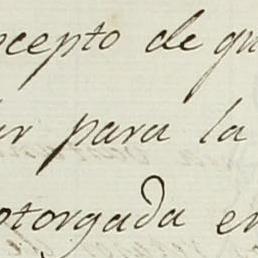 ncepto de qu
ir para la
otorgada en